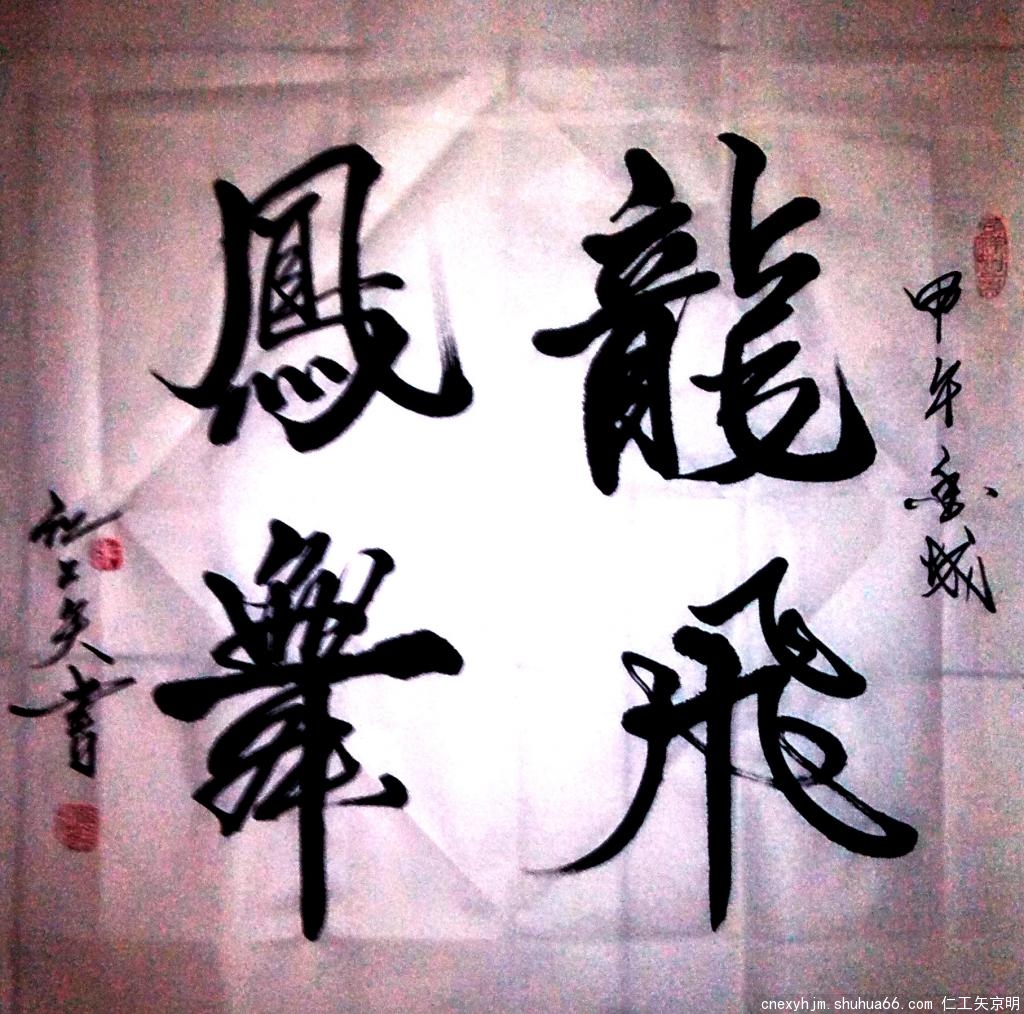 甲午
龍飛
鳳舞
工矢書
cnexyhjm.shuhua66.com 仁工矢京明